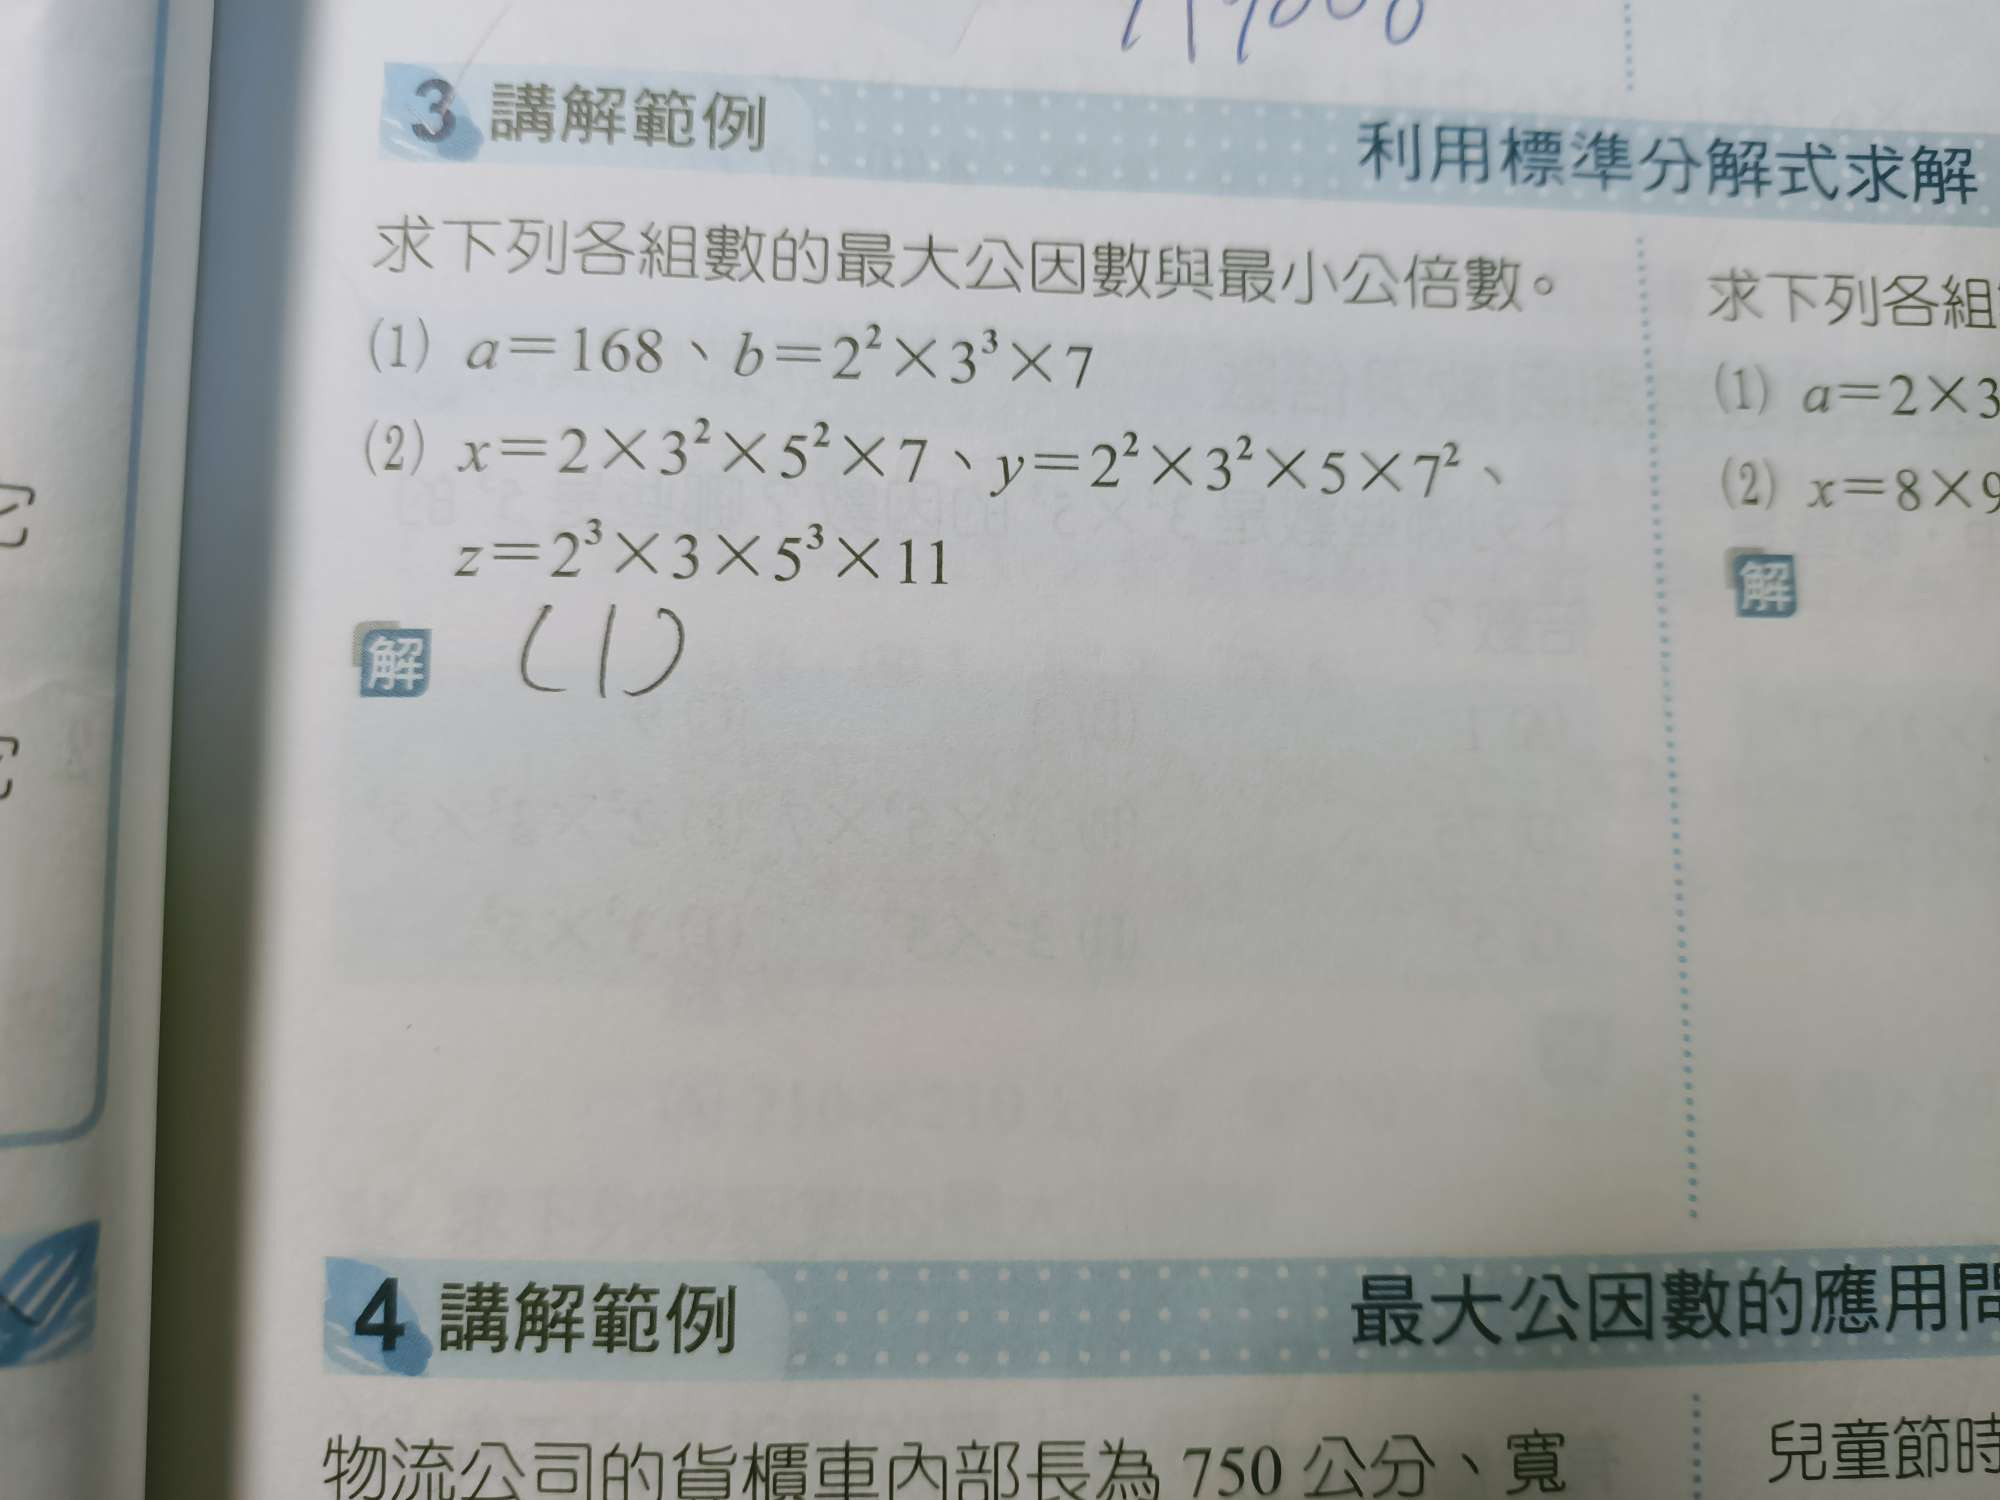 3 講解範例 利用標準分解式求解
求下列各組數的最大公因數與最小公倍數。
(1) a=168、b=2²×3³×7
(2) x=2×3²×5²×7、y=2²×3²×5×7²、
z=2³×3×5³×11
解 (1)
求下列各組
(1) a=2×3
(2) x=8×9
解
4 講解範例 最大公因數的應用問
物流公司的貨櫃車內部長為 750 公分、寬
兒童節時